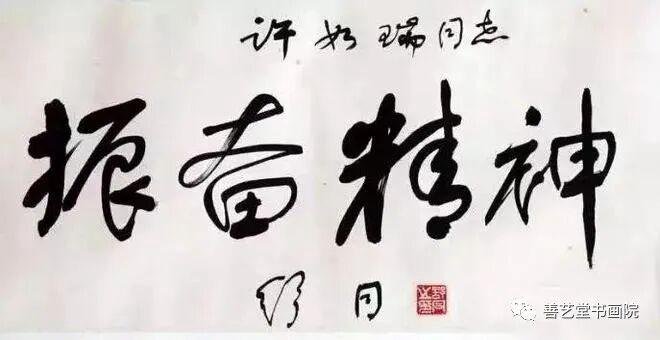 许如瑞同志
振奋精神
舒同
善艺堂书画院